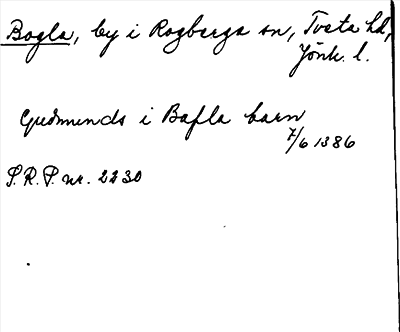 Bogla, by i Rogberga sn, Tveta hd,
Jönk. l.
Gudmunds i Bafla barn
7/6 1386
S.R.P. nr. 2230